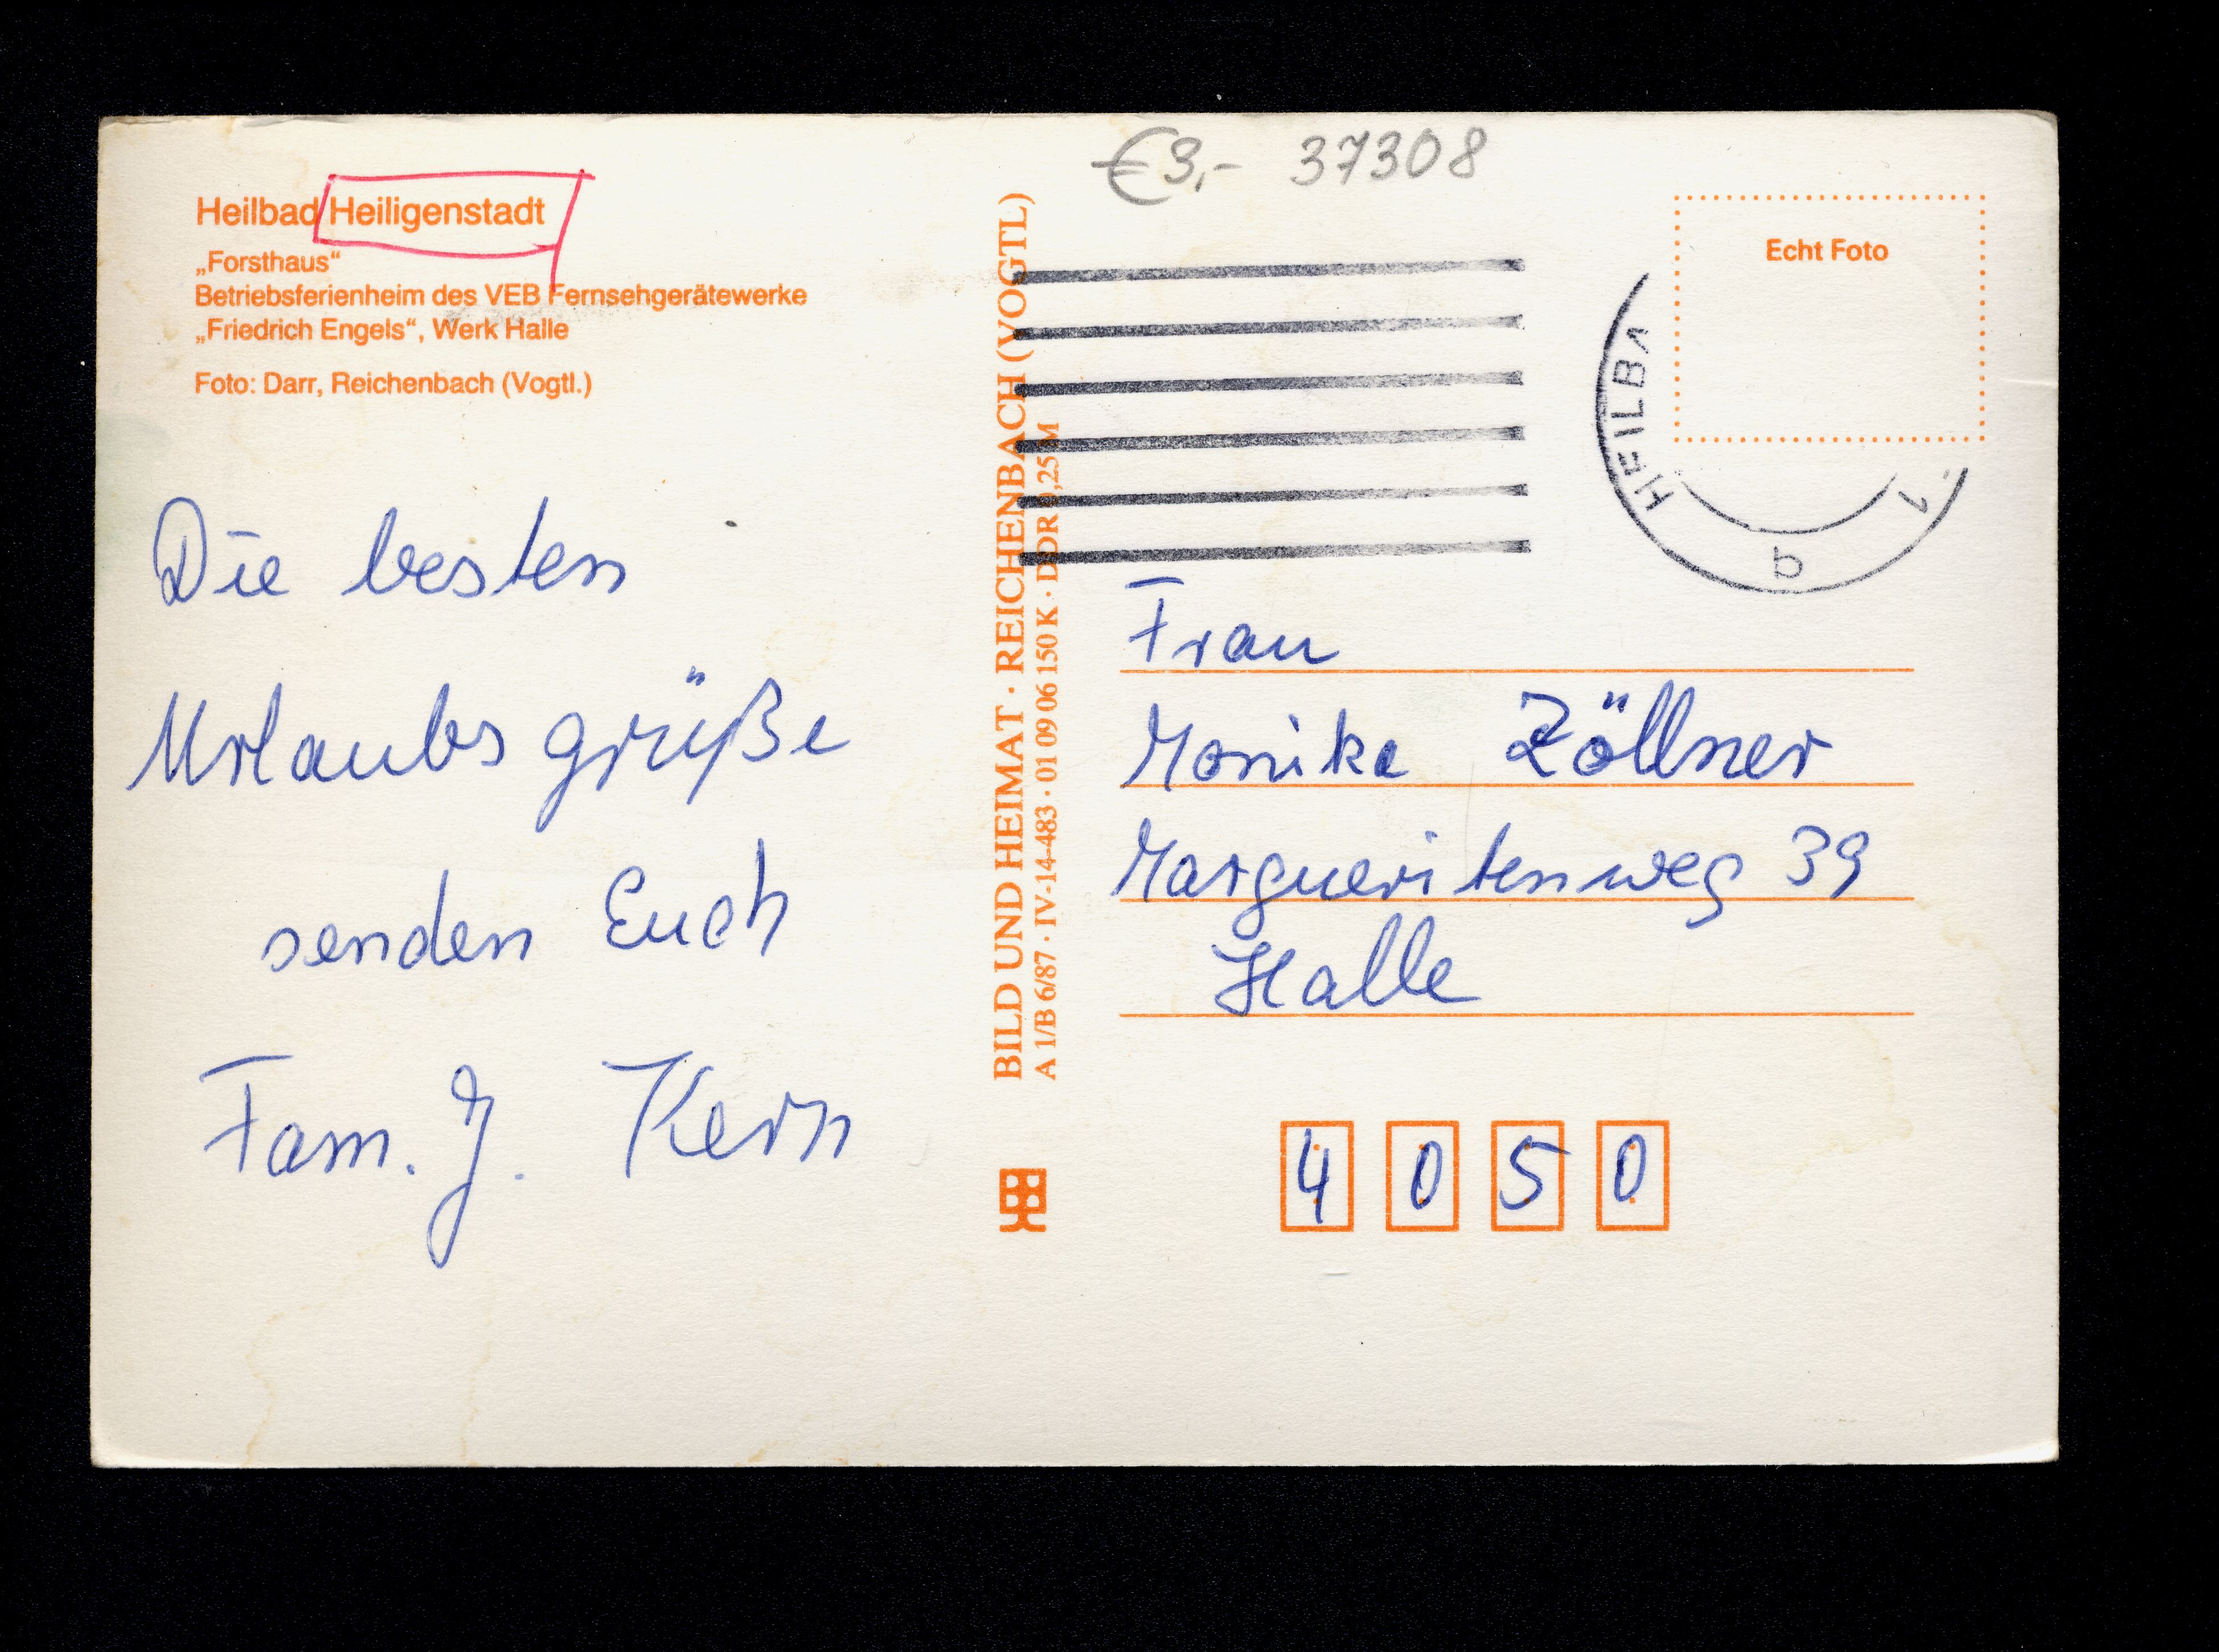 €3,- 37308
Heilbad Heiligenstadt
„Forsthaus“
Betriebsferienheim des VEB Fernsehgerätewerke
„Friedrich Engels“, Werk Halle
Foto: Darr, Reichenbach (Vogtl.)
Die besten
Urlaubsgrüße
senden Euch
Fam. J. Kern
BILD UND HEIMAT · REICHENBACH (VOGTL)
A 1/B 6/87 · IV-14-483 · 01 09 06 150 K · DDR 0,25 M
Echt Foto
HEILBA
b
Frau
Monika Zöllner
Margueritenweg 39
Halle
4 0 5 0